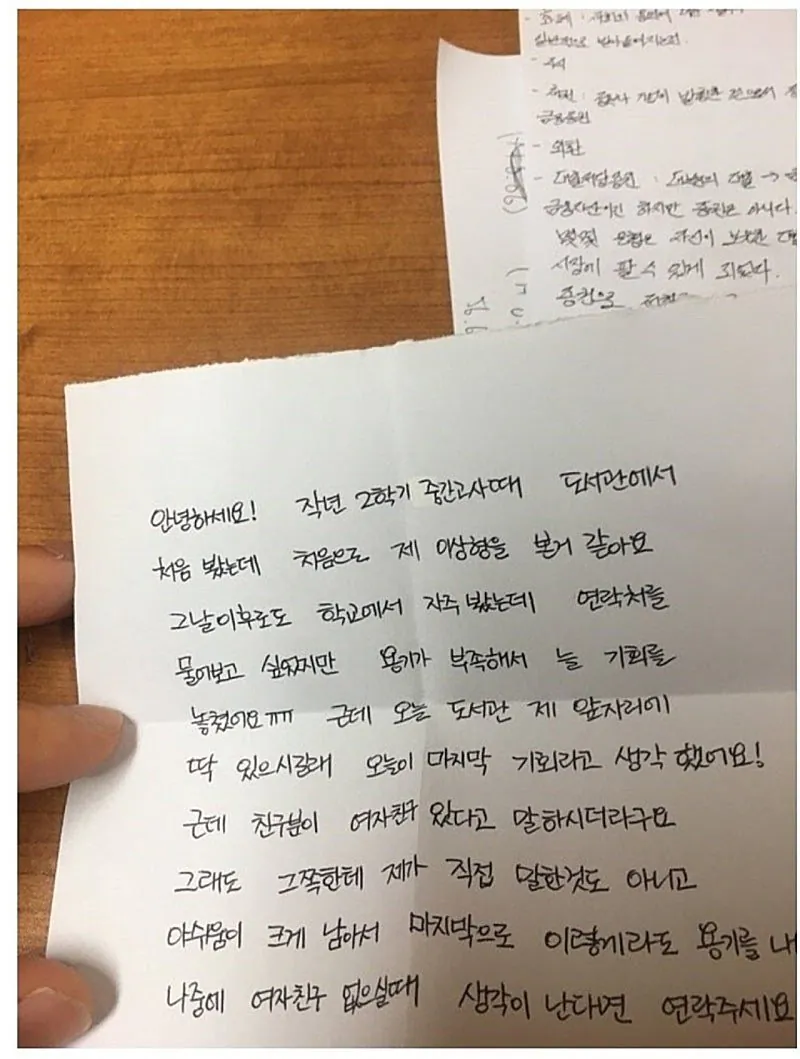 금융증권
- 외환
금융자산이긴 하지만 증권은 아니다.
시장에 팔 수 있게 된다.
증권으로
안녕하세요! 작년 2학기 중간고사때 도서관에서
처음 봤는데 처음으로 제 이상형을 본거 같아요
그날이후로도 학교에서 자주 봤는데 연락처를
물어보고 싶었지만 용기가 부족해서 늘 기회를
놓쳤어요ㅠㅠ 근데 오늘 도서관 제 앞자리에
딱 있으시길래 오늘이 마지막 기회라고 생각 했어요!
근데 친구분이 여자친구 있다고 말하시더라구요
그래도 그쪽한테 제가 직접 말한것도 아니고
아쉬움이 크게 남아서 마지막으로 이렇게라도 용기를 내
나중에 여자친구 없으실때 생각이 난다면 연락주세요